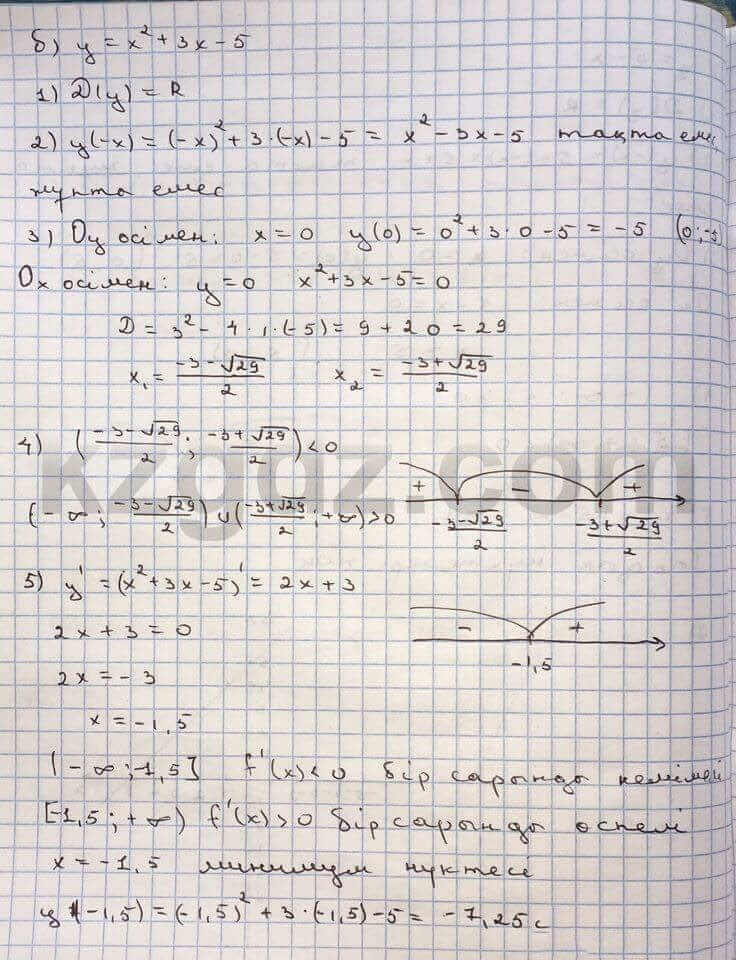 б) y = x² + 3x - 5
1) D(y) = R
2) y(-x) = (-x)² + 3·(-x) - 5 = x² - 3x - 5 тақта емес
жұпта емес
3) Oy осімен: x = 0 y(0) = 0² + 3·0 - 5 = -5 (0; -5)
Ox осімен: y = 0 x² + 3x - 5 = 0
D = 3² - 4·1·(-5) = 9 + 20 = 29
x₁ = (-3 - √29)/2 x₂ = (-3 + √29)/2
4) ((-3 - √29)/2; (-3 + √29)/2) < 0
+ - +
(-∞; (-3 - √29)/2) ∪ ((-3 + √29)/2; +∞) > 0
(-3 - √29)/2 (-3 + √29)/2
5) y' = (x² + 3x - 5)' = 2x + 3
- +
-1,5
2x + 3 = 0
2x = -3
x = -1,5
(-∞; -1,5] f'(x) < 0 бір сарынды кемімелі
[-1,5; +∞) f'(x) > 0 бір сарынды өспелі
x = -1,5 минимум нүктесі
y(-1,5) = (-1,5)² + 3·(-1,5) - 5 = -7,25
kzgdz.com